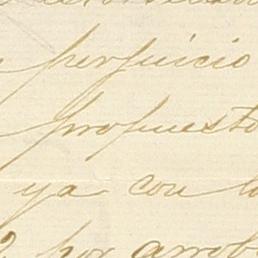 perjuicio
propuesto
ya con
por arrob